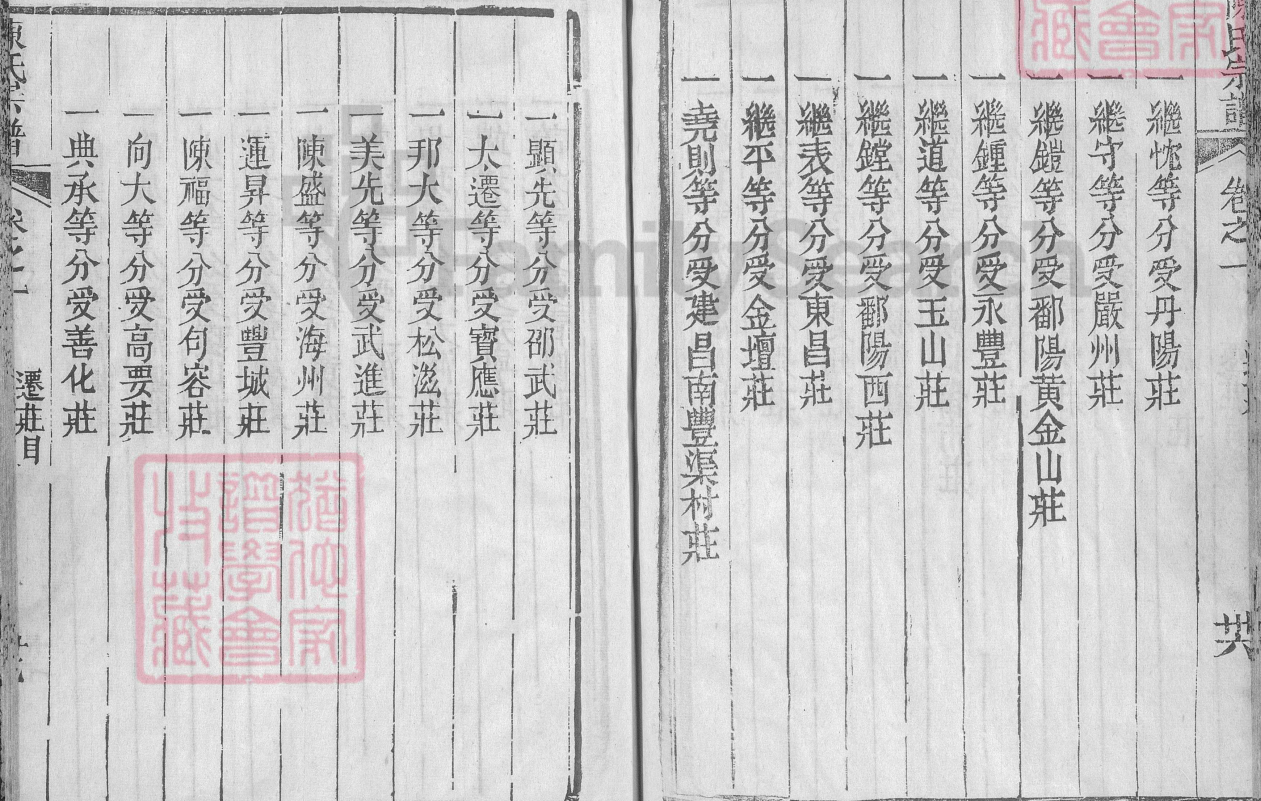 陳氏宗譜
卷之一
卅六
一繼忱等分受丹陽莊
一繼守等分受嚴州莊
一繼鎧等分受鄱陽黄金山莊
一繼鍾等分受永豐莊
一繼道等分受玉山莊
一繼鏜等分受鄱陽西莊
一繼表等分受東昌莊
一繼平等分受金壇莊
一堯則等分受建昌南豐渠村莊
一顯先等分受邵武莊
一大遷等分受寶應莊
一邦大等分受松滋莊
一美先等分受武進莊
一陳盛等分受海州莊
一運昇等分受豐城莊
一陳福等分受句容莊
一向大等分受高要莊
一典承等分受善化莊
陳氏宗譜
卷之一
遷莊目
譜學會
收藏
家會藏
FamilySearch